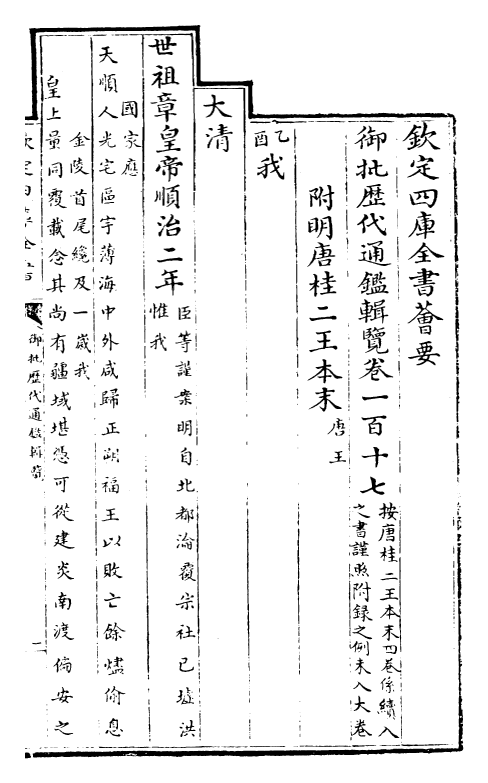 欽定四庫全書薈要
御批歷代通鑑輯覽卷一百十七
按唐桂二王本末四卷係續入
之書謹照附錄之例未入大卷
附明唐桂二王本末 唐王
乙酉我
大清
世祖章皇帝順治二年
臣等謹案明自北都淪覆宗社已墟洪
惟我
國家應
天順人光宅區宇薄海中外咸歸正朔福王以敗亡餘燼偷息
金陵首尾纔及一歲我
皇上量同覆載念其尚有疆域堪憑可從建炎南渡偏安之
欽定四庫全書
御批歷代通鑑輯覽
一